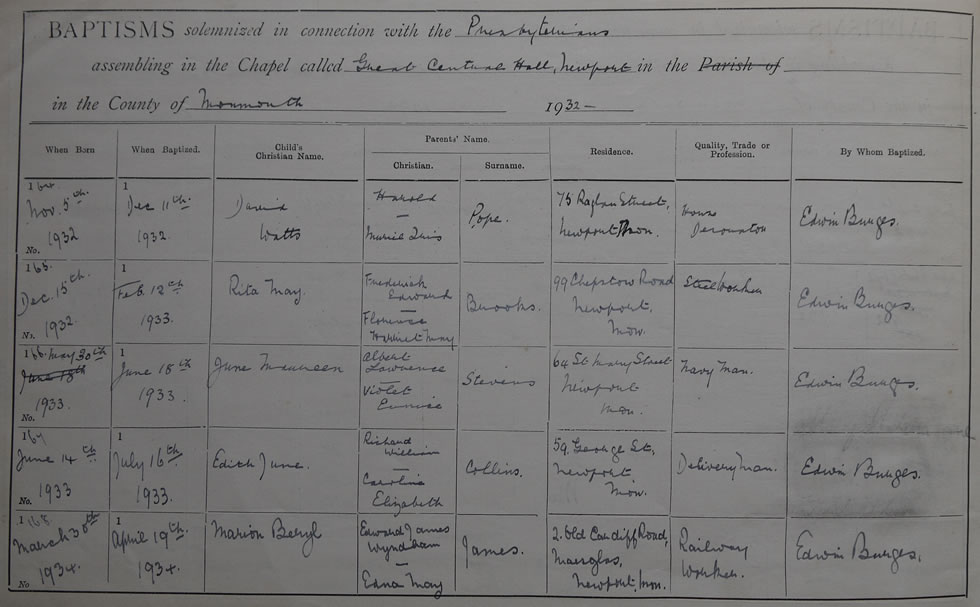 BAPTISMS solemnized in connection with the Presbyterians
assembling in the Chapel called Great Central Hall, Newport in the Parish of
in the County of Monmouth 1932-
When Born When Baptized. Child's Christian Name. Parents' Name. Christian. Surname. Residence. Quality, Trade or Profession. By Whom Baptized.
164.
Nov. 5th
1932
No.
1
Dec 11th
1932.
David
Watts
Harold
—
Muriel
Pope.
75 Raglan Street,
Newport Mon.
House
Decorator
Edwin Burges.
165.
Dec. 15th
1932.
No.
1
Feb. 12th
1933.
Rita May.
Frederick
Edward
—
Florence
Harriet May
Brooks.
99 Chepstow Road
Newport,
Mon.
Steelworker
Edwin Burges.
166. May 30th
June 18th
1933.
No.
1
June 18th
1933.
June Maureen
Albert
Lawrence
—
Violet
Eunice
Stevens
64 St Mary Street
Newport
Mon.
Navy Man.
Edwin Burges.
167
June 14th
1933
No.
1
July 16th
1933.
Edith June.
Richard
William
—
Caroline
Elizabeth
Collins.
59, George St,
Newport,
Mon.
Deliveryman.
Edwin Burges.
1 168.
March 30th
1934.
No
1
April 19th.
1934.
Marion Beryl
Edward James
Wyndham
—
Edna May
James.
2. Old Cardiff Road,
Maesglas,
Newport, Mon.
Railway
Worker.
Edwin Burges.